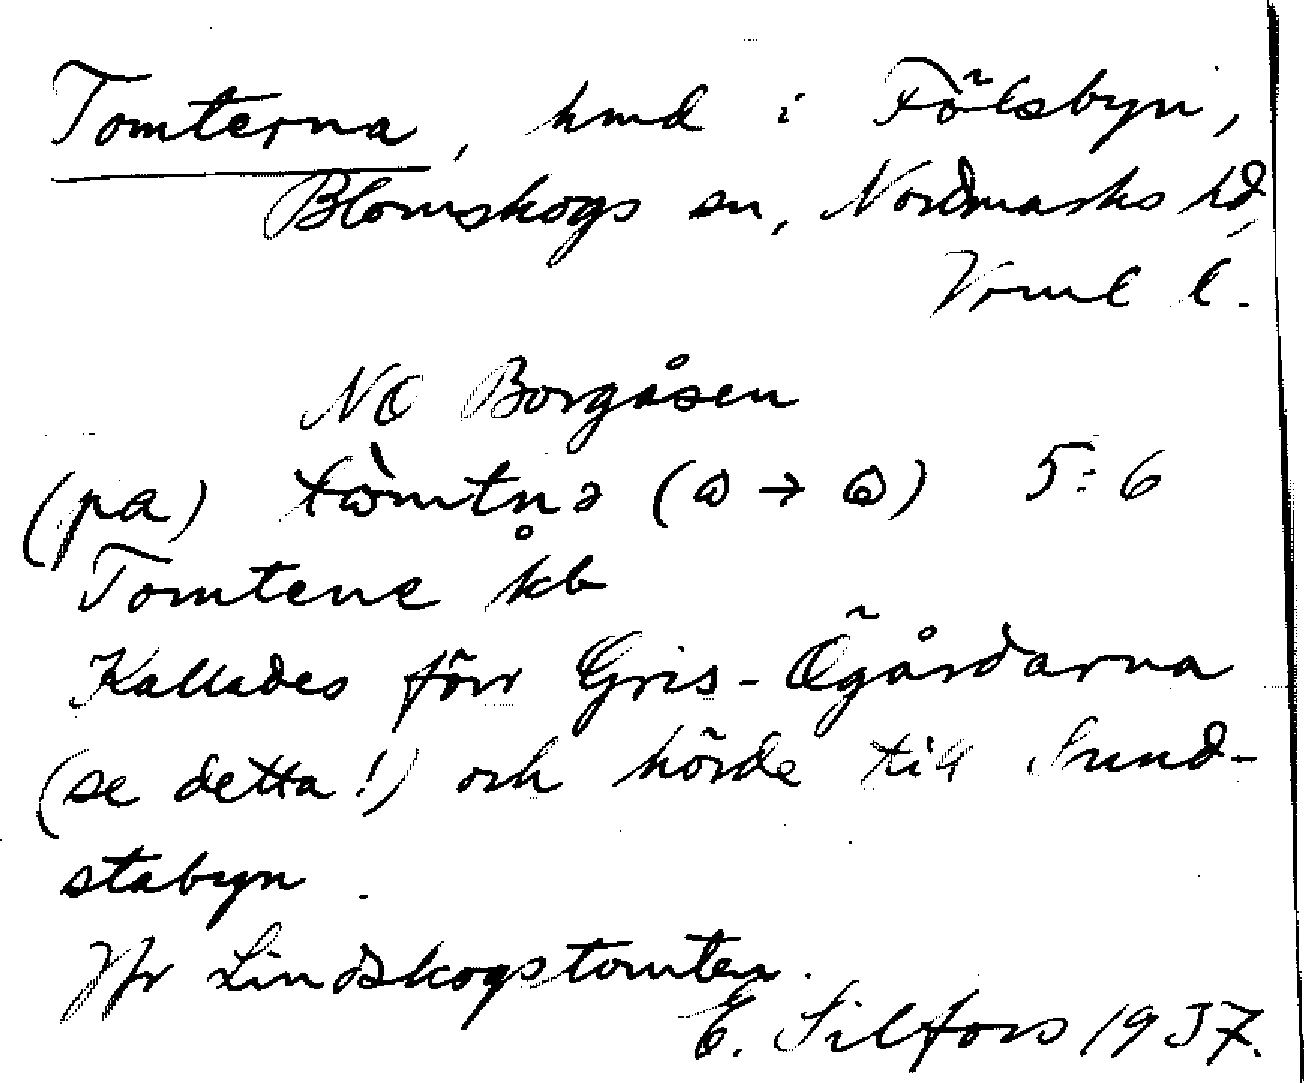 Tomterna, hmd i Fölsbyn,
Blomskogs sn, Nordmarks hd,
Vrml l.
NO Borgåsen
(på) (ɷ → ɷ) 5:6
Tomtene kb
Kallades förr Gris-Ögårdarna
(se detta!) och hörde till Sund-
stabyn.
Jfr Lindskogstomten.
E. Silfors 1937.